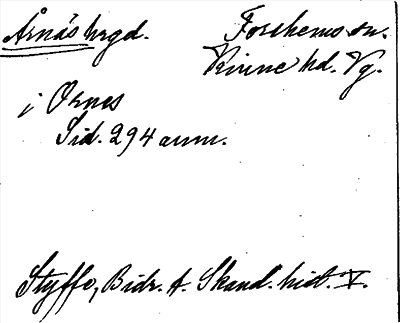 Årnäs hrgd. Forshems sn.
Kinne hd. Vg.
i Ornes
Sid. 294 anm.
Styffe, Bidr. t. Skand. hist. V.